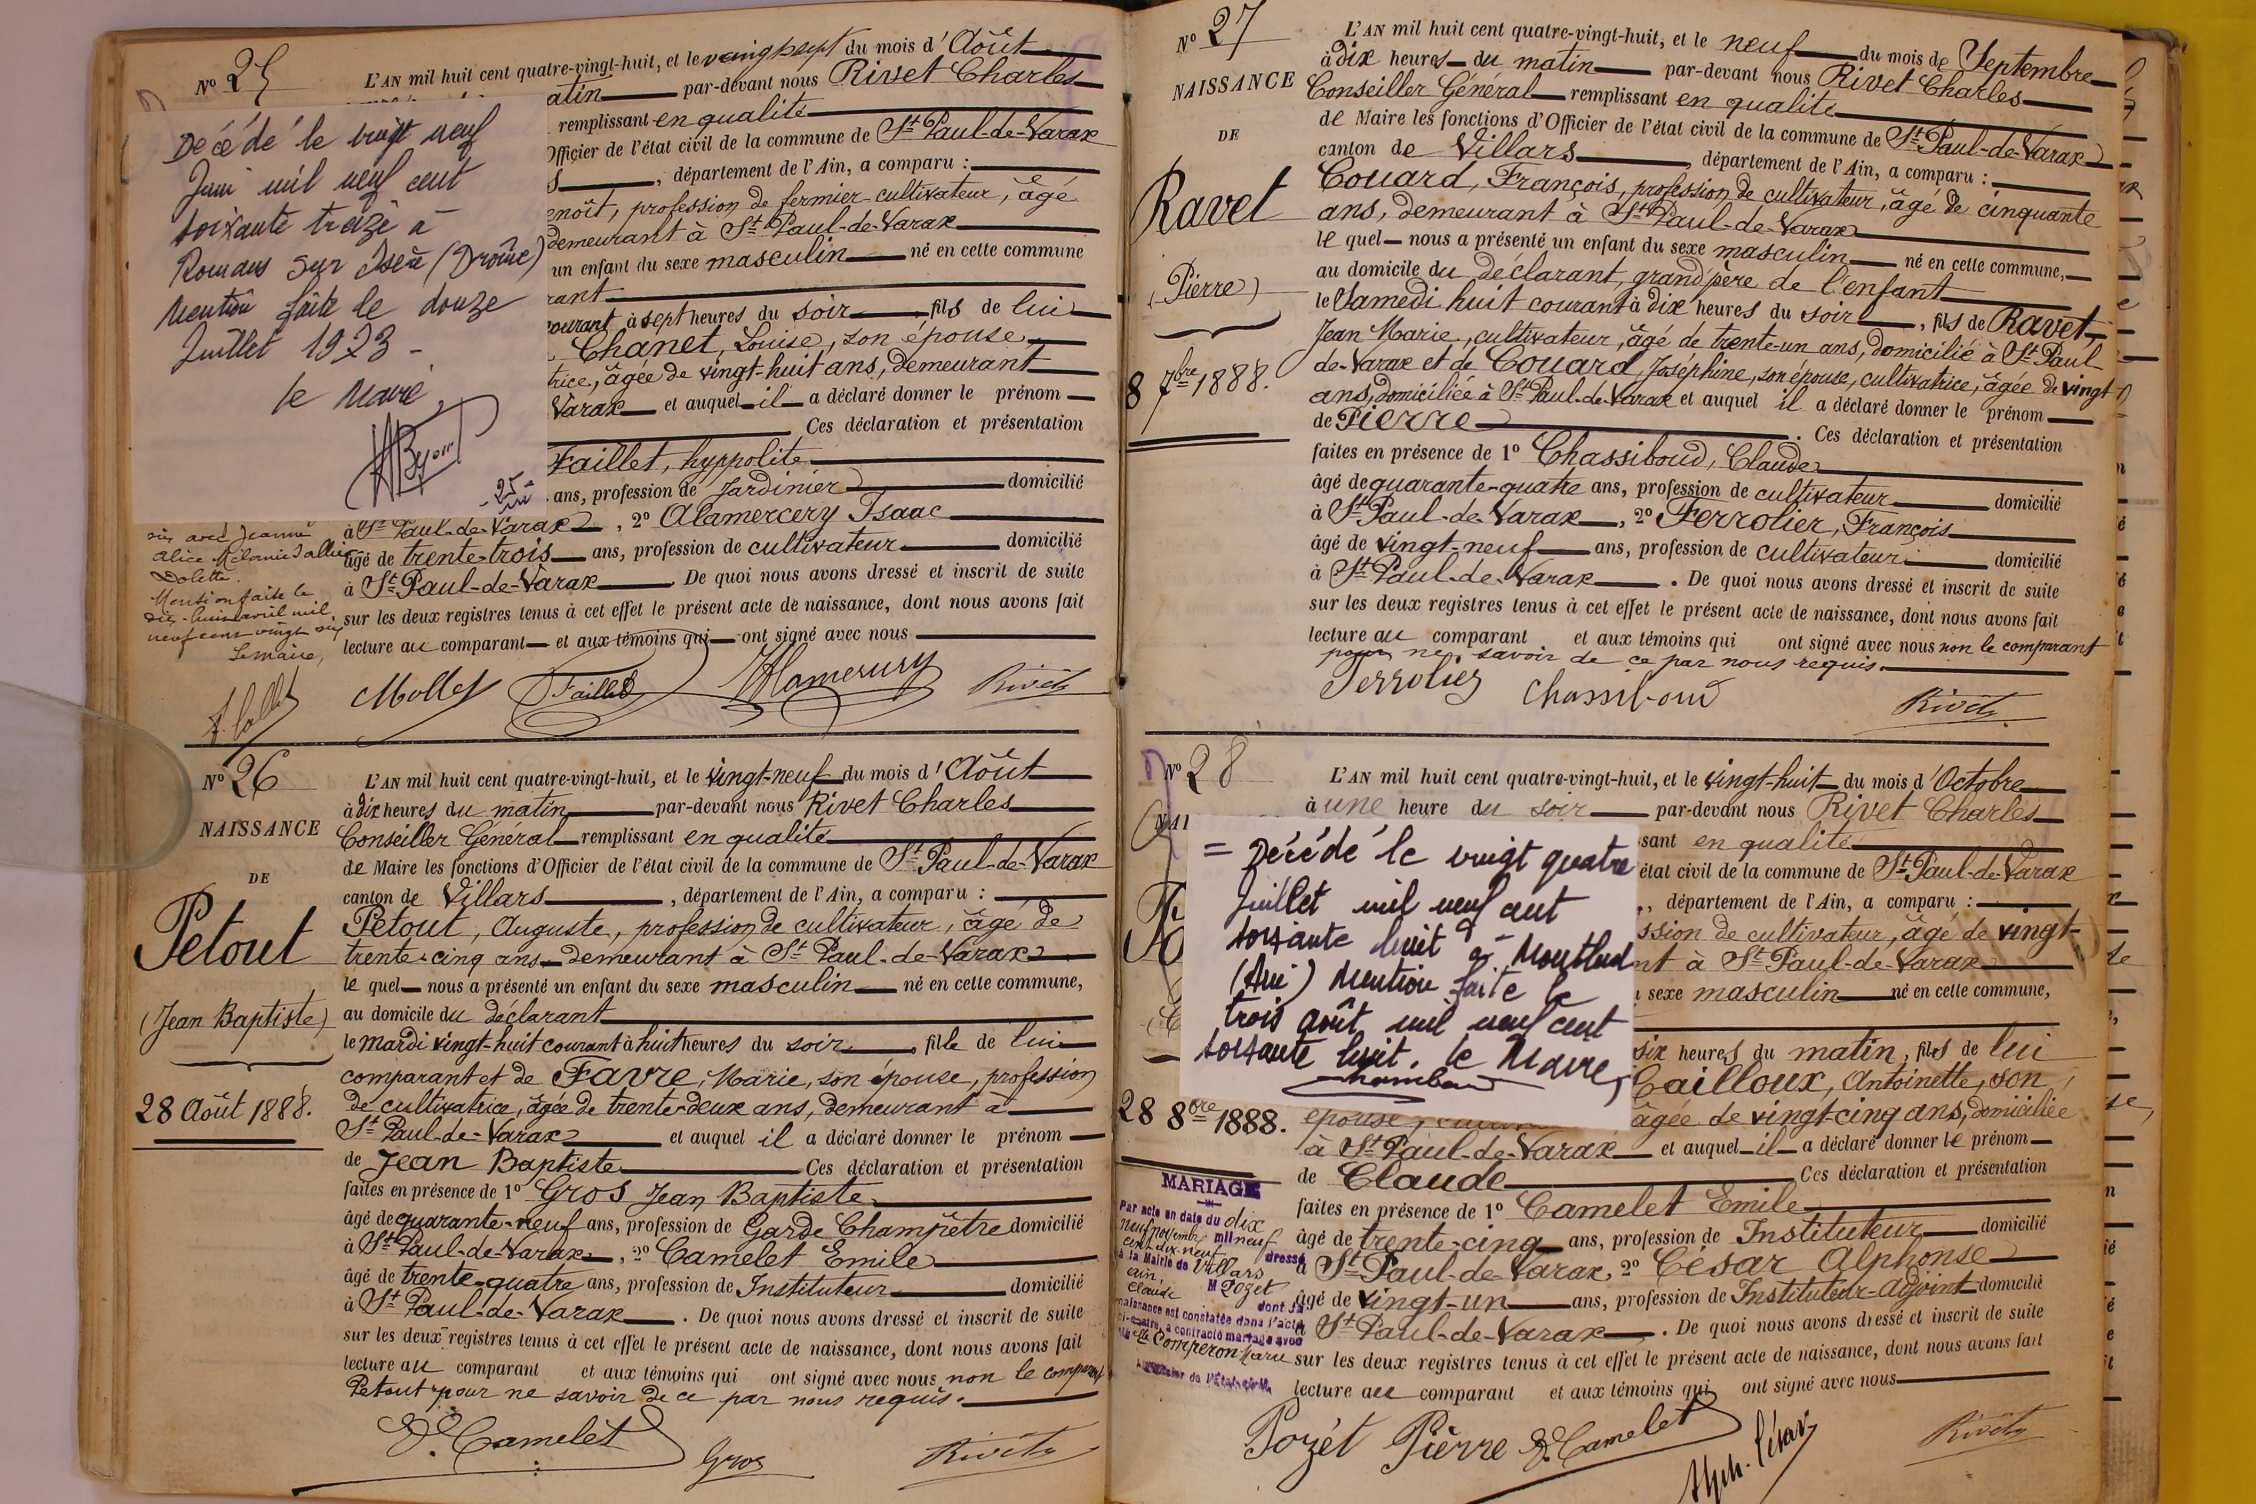 Nº 25
L'AN mil huit cent quatre-vingt-huit, et le vingt sept du mois d'Août
atin par-devant nous Rivet Charles
remplissant en qualité
Officier de l'état civil de la commune de St Paul-de-Varax
s, département de l'Ain, a comparu :
enoît, profession de fermier cultivateur, âgé
demeurant à St Paul-de-Varax
un enfant du sexe masculin né en cette commune
rant
courant à sept heures du soir, fils de lui
Chanet, Louise, son épouse
trice, âgée de vingt-huit ans, demeurant
Varax et auquel il a déclaré donner le prénom
Ces déclaration et présentation
Faillet, hyppolite
ans, profession de Jardinier domicilié
à St Paul-de-Varax, 2º Alamercery Isaac
âgé de trente-trois ans, profession de cultivateur domicilié
à St Paul-de-Varax. De quoi nous avons dressé et inscrit de suite
sur les deux registres tenus à cet effet le présent acte de naissance, dont nous avons fait
lecture au comparant et aux témoins qui ont signé avec nous
Mollet Faillet Alamercery Rivet
Décédé le vingt neuf
Juin mil neuf cent
soixante treize à
Romans sur Isère (Drôme)
Mention faite le douze
Juillet 1973 -
le Maire,
- 25 -
six avec Jeanne
Alice Mélanie
Dolette.
Mention faite le
dix-huit avril mil
neuf cent vingt six
Le maire,
Nº 26
NAISSANCE
DE
Petout
(Jean Baptiste)
28 Août 1888.
L'AN mil huit cent quatre-vingt-huit, et le vingt-neuf du mois d'Août
à dix heures du matin par-devant nous Rivet Charles
Conseiller Général remplissant en qualité
de Maire les fonctions d'Officier de l'état civil de la commune de St Paul-de-Varax
canton de Villars, département de l'Ain, a comparu :
Petout, Auguste, profession de cultivateur, âgé de
trente-cinq ans demeurant à St Paul-de-Varax
le quel nous a présenté un enfant du sexe masculin né en cette commune,
au domicile du déclarant
le mardi vingt-huit courant à huit heures du soir, fils de lui
comparant et de Favre, Marie, son épouse, profession
de cultivatrice, âgée de trente-deux ans, demeurant à
St Paul-de-Varax et auquel il a déclaré donner le prénom
de Jean Baptiste Ces déclaration et présentation
faites en présence de 1º Gros Jean Baptiste
âgé de quarante-neuf ans, profession de Garde Champêtre domicilié
à St Paul-de-Varax, 2º Camelet Emile
âgé de trente-quatre ans, profession de Instituteur domicilié
à St Paul-de-Varax. De quoi nous avons dressé et inscrit de suite
sur les deux registres tenus à cet effet le présent acte de naissance, dont nous avons fait
lecture au comparant et aux témoins qui ont signé avec nous non le comparant
Petout pour ne savoir de ce par nous requis.
E. Camelet Gros Rivet
Nº 27
NAISSANCE
DE
Ravet
(Pierre)
8 7bre 1888.
L'AN mil huit cent quatre-vingt-huit, et le neuf du mois de Septembre
à dix heures du matin par-devant nous Rivet Charles
Conseiller Général remplissant en qualité
de Maire les fonctions d'Officier de l'état civil de la commune de St Paul-de-Varax
canton de Villars, département de l'Ain, a comparu :
Couard, François, profession de cultivateur, âgé de cinquante
ans, demeurant à St Paul-de-Varax
le quel nous a présenté un enfant du sexe masculin né en cette commune,
au domicile du déclarant, grand'père de l'enfant
le Samedi huit courant à dix heures du soir, fils de Ravet,
Jean Marie, cultivateur, âgé de trente-un ans, domicilié à St Paul
de-Varax et de Couard, Joséphine, son épouse, cultivatrice, âgée de vingt
ans, domiciliée à St Paul-de-Varax et auquel il a déclaré donner le prénom
de Pierre. Ces déclaration et présentation
faites en présence de 1º Chassiboud, Claude
âgé de quarante-quatre ans, profession de cultivateur domicilié
à St Paul-de-Varax, 2º Ferrolier, François
âgé de vingt-neuf ans, profession de cultivateur domicilié
à St Paul-de-Varax. De quoi nous avons dressé et inscrit de suite
sur les deux registres tenus à cet effet le présent acte de naissance, dont nous avons fait
lecture au comparant et aux témoins qui ont signé avec nous non le comparant
pour ne savoir de ce par nous requis.
Ferrolier Chassiboud Rivet
Nº 28
L'AN mil huit cent quatre-vingt-huit, et le vingt-huit du mois d'Octobre
à une heure du soir par-devant nous Rivet Charles
ssant en qualité
état civil de la commune de St Paul-de-Varax
, département de l'Ain, a comparu :
ssion de cultivateur, âgé de vingt-
nt à St Paul-de-Varax
sexe masculin né en cette commune,
six heures du matin, fils de lui
Cailloux, Antoinette, son
épouse, âgée de vingt-cinq ans, domiciliée
à St Paul-de-Varax et auquel il a déclaré donner le prénom
de Claude Ces déclaration et présentation
faites en présence de 1º Camelet Emile
âgé de trente-cinq ans, profession de Instituteur domicilié
à St Paul-de-Varax, 2º César Alphonse
âgé de vingt-un ans, profession de Instituteur-Adjoint domicilié
à St Paul-de-Varax. De quoi nous avons dressé et inscrit de suite
sur les deux registres tenus à cet effet le présent acte de naissance, dont nous avons fait
lecture au comparant et aux témoins qui ont signé avec nous
Pozet Pierre E. Camelet Alph. César Rivet
= Décédé le vingt quatre
Juillet mil neuf cent
soixante huit à Montluel
(Ain) Mention faite le
trois août mil neuf cent
soixante huit. Le Maire,
28 8bre 1888.
MARIAGE
Par acte en date du dix
neuf novembre mil neuf
cent dix neuf dressé
à la Mairie de Villars
Ain, M Pozet
Claude dont la
naissance est constatée dans l'acte
ci-contre, a contracté mariage avec
Mlle Comperon Marie
L'Officier de l'État-civil,